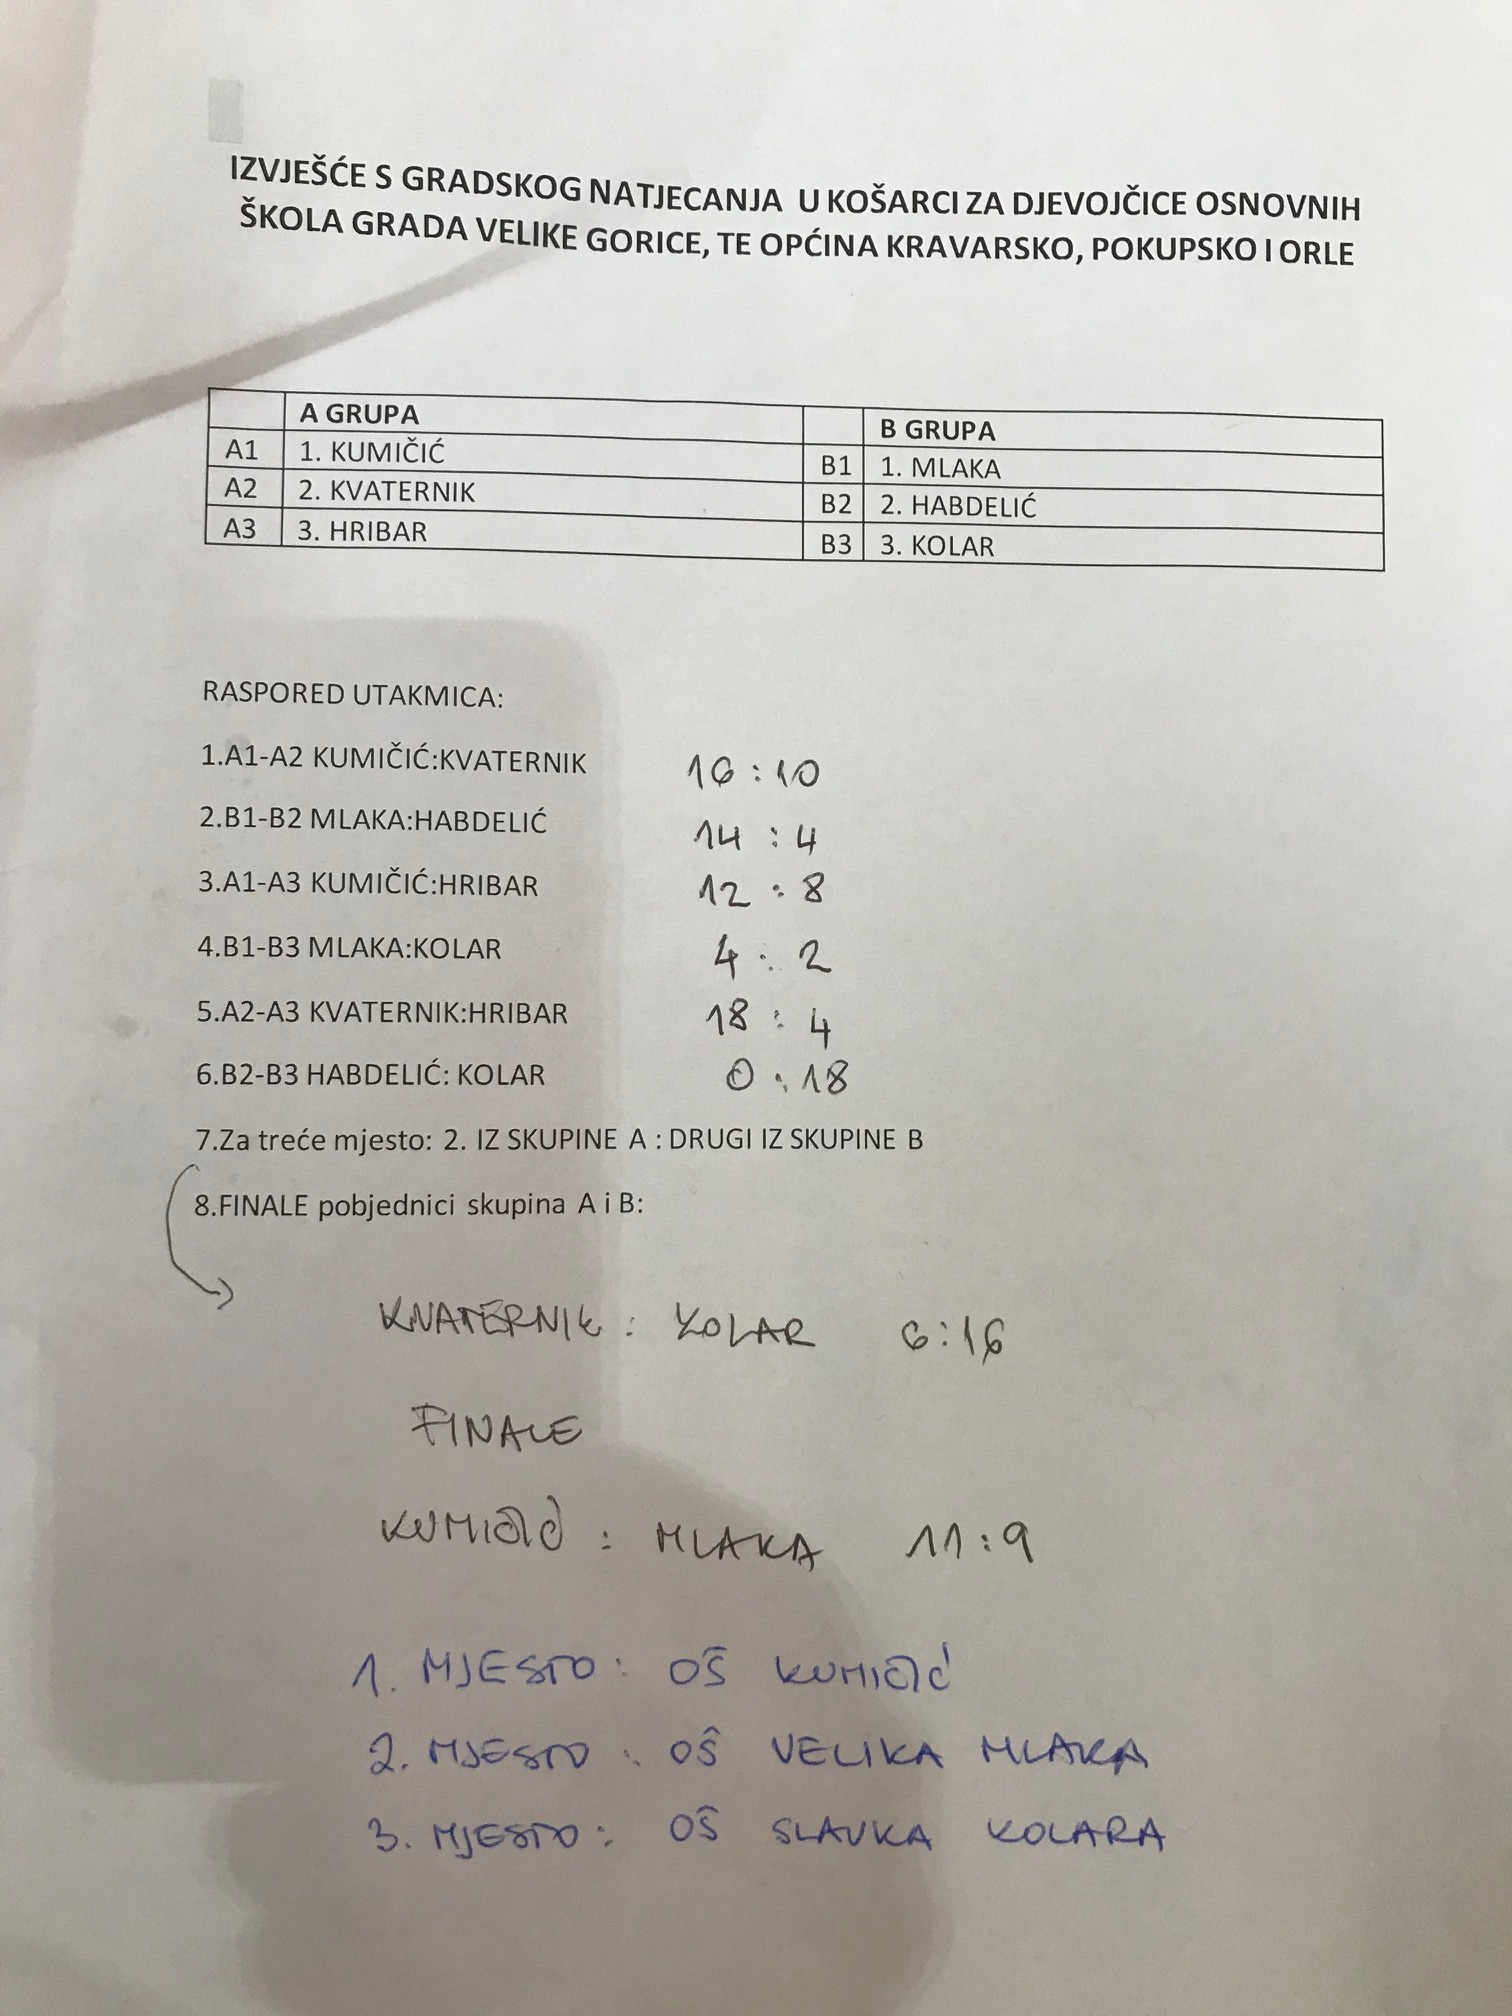 IZVJEŠĆE S GRADSKOG NATJECANJA U KOŠARCI ZA DJEVOJČICE OSNOVNIH
ŠKOLA GRADA VELIKE GORICE, TE OPĆINA KRAVARSKO, POKUPSKO I ORLE
A GRUPA B GRUPA
A1 1. KUMIČIĆ B1 1. MLAKA
A2 2. KVATERNIK B2 2. HABDELIĆ
A3 3. HRIBAR B3 3. KOLAR
RASPORED UTAKMICA:
1.A1-A2 KUMIČIĆ:KVATERNIK 16:10
2.B1-B2 MLAKA:HABDELIĆ 14:4
3.A1-A3 KUMIČIĆ:HRIBAR 12:8
4.B1-B3 MLAKA:KOLAR 4:2
5.A2-A3 KVATERNIK:HRIBAR 18:4
6.B2-B3 HABDELIĆ: KOLAR 0:18
7.Za treće mjesto: 2. IZ SKUPINE A : DRUGI IZ SKUPINE B
8.FINALE pobjednici skupina A i B:
KVATERNIK : KOLAR 6:16
FINALE
KUMIČIĆ : MLAKA 11:9
1. MJESTO: OŠ KUMIČIĆ
2. MJESTO: OŠ VELIKA MLAKA
3. MJESTO: OŠ SLAVKA KOLARA